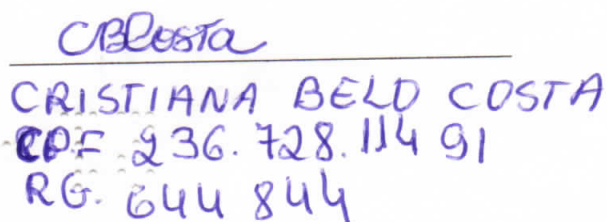 CBCosta
CRISTIANA BELO COSTA
CPF 236.728.114 91
RG. 644 844